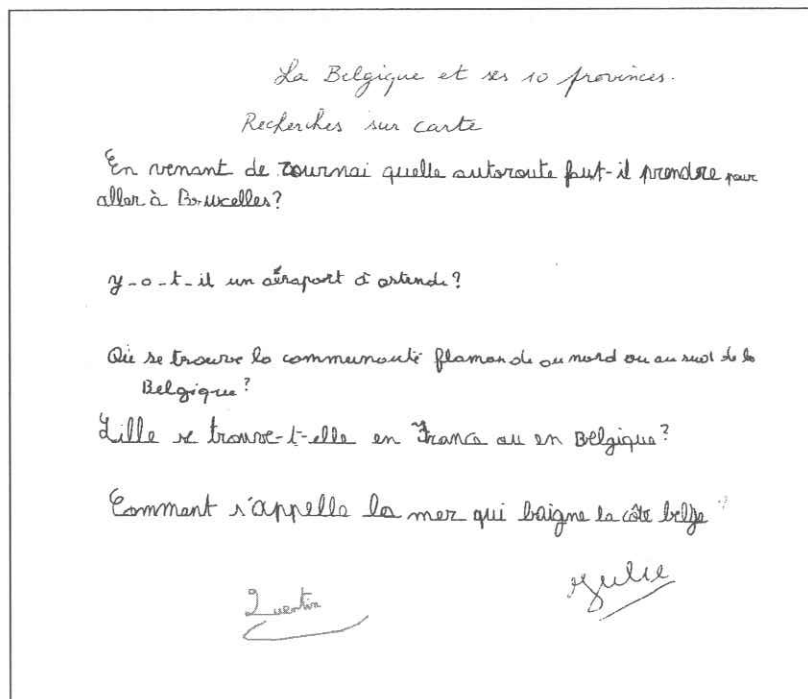 La Belgique et ses 10 provinces.
Recherches sur carte
En venant de Tournai quelle autoroute faut-il prendre pour
aller à Bruxelles?
y-a-t-il un aéraport à ostende?
Où se trouve la communauté flamande au nord ou au sud de la
Belgique?
Lille se trouve-t-elle en France ou en Belgique?
Comment s'appelle la mer qui baigne la côte belge ?
Quentin
Julie